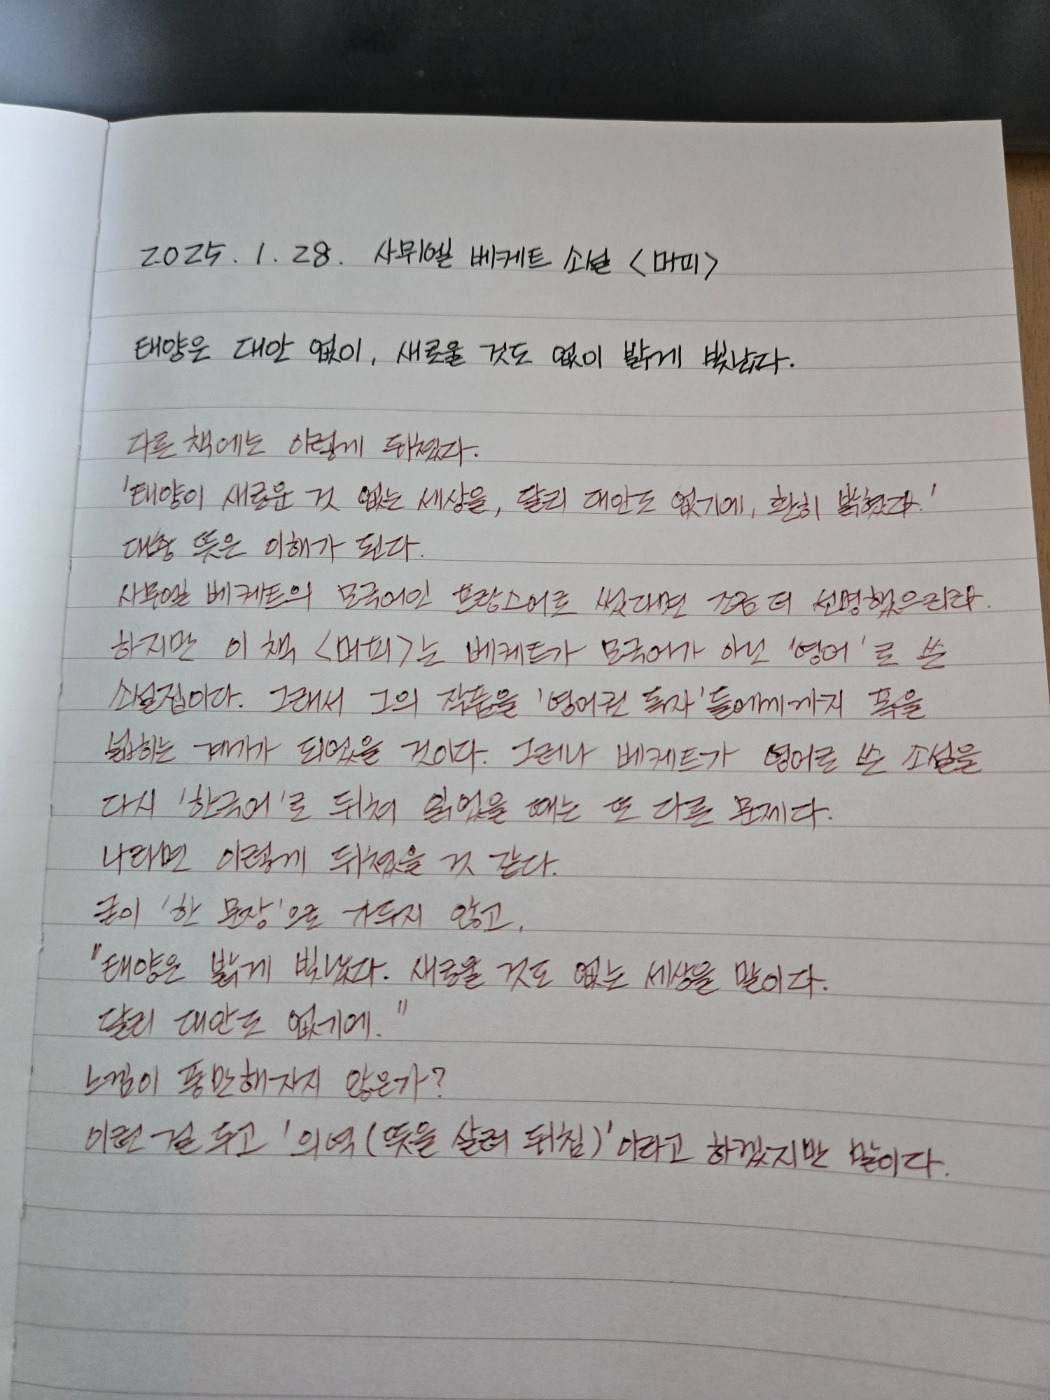 2025. 1. 28. 사뮈엘 베케트 소설 <머피>
태양은 대안 없이, 새로울 것도 없이 밝게 빛났다.
다른 책에는 이렇게 뒤쳤다.
'태양이 새로운 것 없는 세상을, 달리 대안도 없기에, 환히 밝혔다.'
대충 뜻은 이해가 된다.
사무엘 베케트의 모국어인 프랑스어로 썼다면 좀 더 선명했으리라.
하지만 이 책 <머피>는 베케트가 모국어가 아닌 '영어'로 쓴
소설집이다. 그래서 그의 작품을 '영어권 독자'들에게까지 폭을
넓히는 계기가 되었을 것이다. 그러나 베케트가 영어로 쓴 소설을
다시 '한국어'로 뒤쳐 읽었을 때는 또 다른 문제다.
나라면 이렇게 뒤쳤을 것 같다.
굳이 '한 문장'으로 가두지 않고,
"태양은 밝게 빛났다. 새로울 것도 없는 세상을 말이다.
달리 대안도 없기에."
느낌이 풍만해지지 않은가?
이런 걸 두고 '의역(뜻을 살려 뒤침)'이라고 하겠지만 말이다.